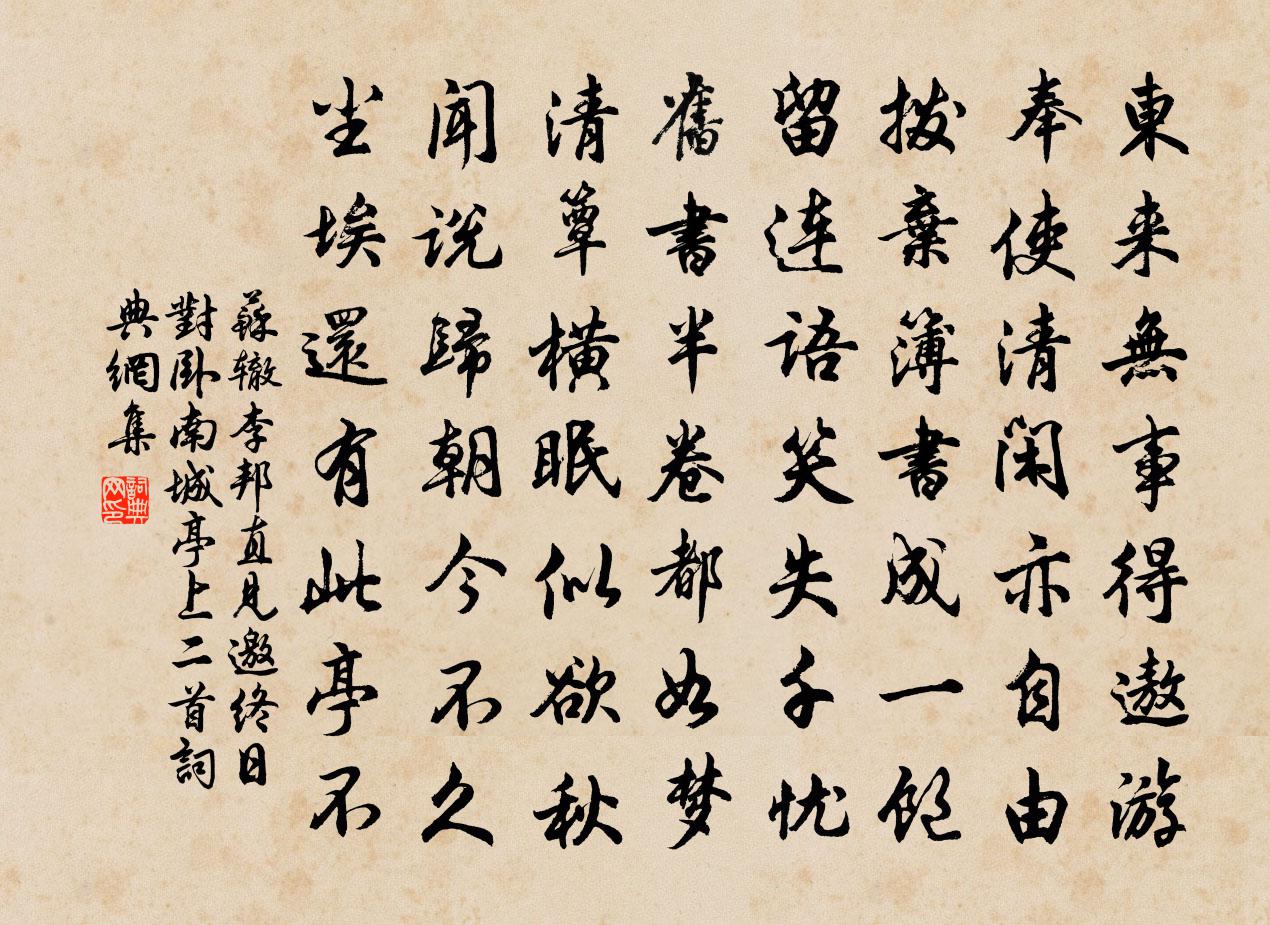 東来無事得遨游
奉使清閑亦自由
撥棄簿書成一飽
留連語笑失千忧
舊書半卷都如梦
清簟横眠似欲秋
闻説歸朝今不久
尘埃還有此亭不
蘇辙李邦直見邀终日
對卧南城亭上二首詞
典網集
詞典网印